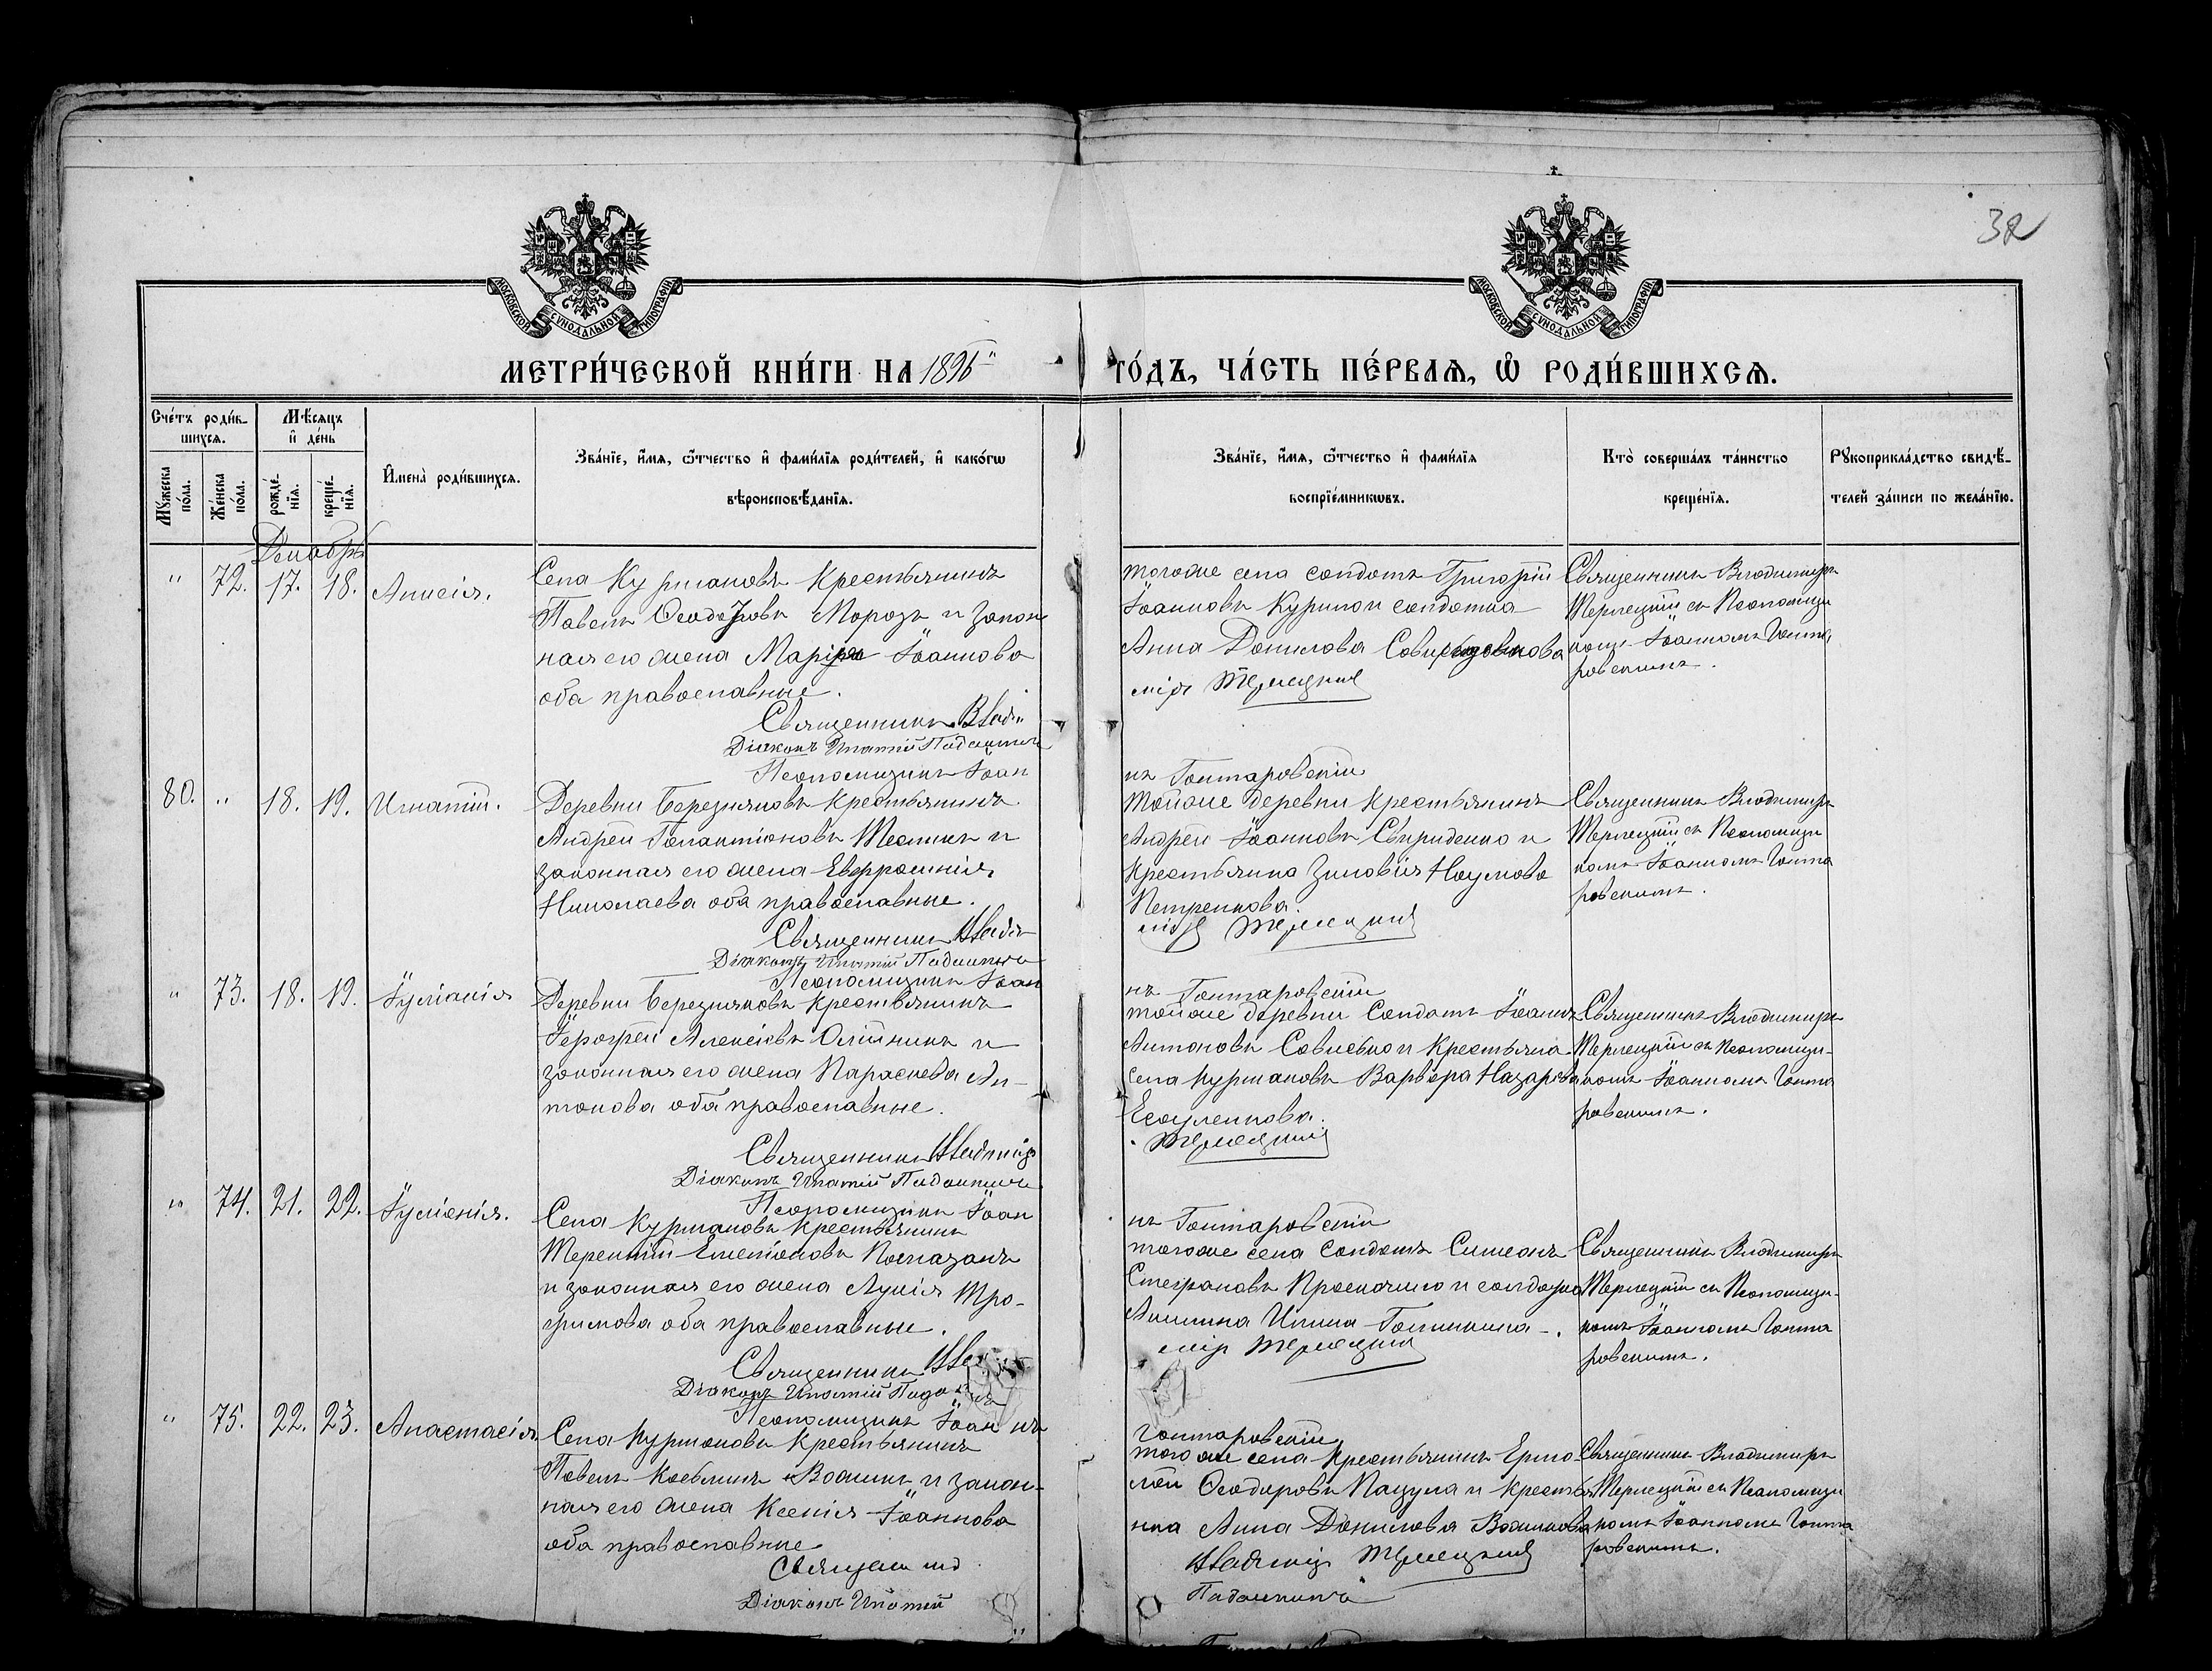 32
МОСКОВСКОЙ СУНОДАЛЬНОЙ ТИПОГРАФІИ
МОСКОВСКОЙ СУНОДАЛЬНОЙ ТИПОГРАФІИ
МЕТРИ́ЧЕСКОЙ КНИ́ГИ НА 1896 ГО́ДЪ, ЧА́СТЬ ПЕ́РВАѦ, Ѡ РОДИ́ВШИХСѦ.
Сче́тъ роди́вшихсѧ.
Мѣ́сѧцъ и де́нь
Мꙋ́жеска по́ла.
Же́нска по́ла.
рожде́нїѧ.
креще́нїѧ.
И҆мена̀ роди́вшихсѧ.
Зва́нїе, и҆́мѧ, ѻ҆́тчество и҆ фами́лїѧ роди́телей, и҆ како́гѡ
вѣроисповѣ́данїѧ.
Зва́нїе, и҆́мѧ, ѻ҆́тчество и҆ фами́лїѧ
воспрїе́мникѡвъ.
Кто̀ соверша́лъ та́инство
креще́нїѧ.
Рꙋкоприкла́дство свидѣ́телей за́писи по жела́нїю.
Декабрь
" 72. 17. 18. Анисія.
Села Курмановъ Крестьянинъ
Павелъ Ѳеодоровъ Морозъ и закон
ная его жена Марія Іоаннова
оба православные.
Священникъ Влади
Діаконъ Ипатій
Псаломщикъ Іоан
тогоже села солдатъ Григорій
Іоанновъ Курило и солдатка
Анна Данилова
міръ Терлецкій
нъ Гонтаровскій
Священникъ Владимиръ
Терлецкій съ Псаломщи
комъ Іоанномъ Гонта
ровскимъ.
80. " 18. 19. Игнатій.
Деревни Березняковъ Крестьянинъ
Андрей Галактіоновъ Тесликъ и
законная его жена Евфросинія
Николаева оба православные.
Священникъ Влади
Діаконъ Ипатій
Псаломщикъ Іоан
тойже деревни Крестьянинъ
Андрей Іоанновъ Свириденко и
Крестьянка Зиновія Наумова
Петренкова.
міръ Терлецкій
нъ Гонтаровскій
Священникъ Владимиръ
Терлецкій съ Псаломщи
комъ Іоанномъ Гонта
ровскимъ.
" 73. 18. 19. Іуліанія
Деревни Березняковъ Крестьянинъ
Іерофей Алексіевъ Олійникъ и
законная его жена Параскева Ан-
тонова оба православные.
Священникъ Владиміръ
Діаконъ Ипатій
Псаломщикъ Іоан
тойже деревни Солдатъ Іоаннъ
Антоновъ Савченко и Крестьянка
села Курмановъ Варвара Назарова
Есауленкова.
Терлецкій
нъ Гонтаровскій
Священникъ Владимиръ
Терлецкій съ Псаломщи-
комъ Іоанномъ Гонта
ровскимъ.
" 74. 21. 22. Іуліанія.
Села Курмановъ Крестьянинъ
Терентій
и законная его жена Лукія Тро-
фимова оба православные.
Священникъ
Діаконъ Ипатій
Псаломщикъ Іоан нъ
тогоже села солдатъ Симеонъ
Стефановъ и солдатка
міръ Терлецкій
Гонтаровскій
Священникъ Владимиръ
Терлецкій съ Псаломщи-
комъ Іоанномъ Гонта
ровскимъ.
" 75. 22. 23. Анастасія
Села Курмановъ Крестьянинъ
Павелъ Косьминъ и закон-
ная его жена Ксенія Іоаннова
оба православные
Священникъ
Діаконъ Ипатій
тогоже села Крестьянинъ Ермо-
лай Ѳеодоровъ Пацула и Крестья
нка Анна Данилова
Владиміръ Терлецкій
Священникъ Владимиръ
Терлецкій съ Псаломщи
комъ Іоанномъ Гонта
ровскимъ.